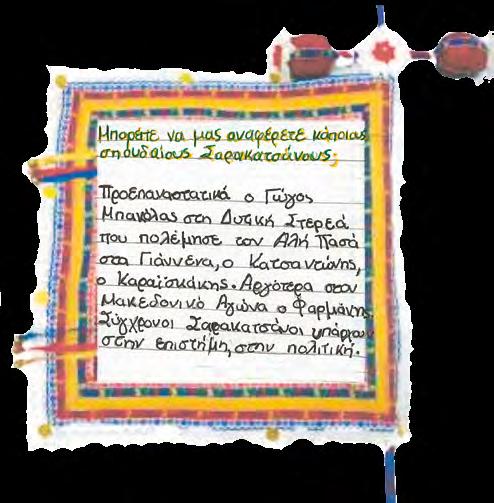 Μπορείτε να μας αναφέρετε κάποιους
σπουδαίους Σαρακατσάνους;
Προεπαναστατικά ο Γώγος
Μπακόλας στη Δυτική Στερεά
που πολέμησε τον Αλή Πασά
στα Γιάννενα, ο Κατσαντώνης,
ο Καραϊσκάκης. Αργότερα στον
Μακεδονικό Αγώνα ο Φαρμάκης.
Σύγχρονοι Σαρακατσάνοι υπάρχουν
στην επιστήμη, στην πολιτική.